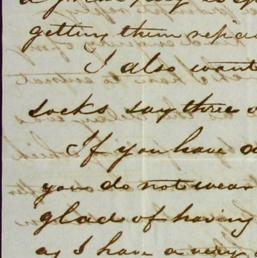 getting them repai
I also want
socks say three o
If you have a
you do not wear
glad of having
as I have a very